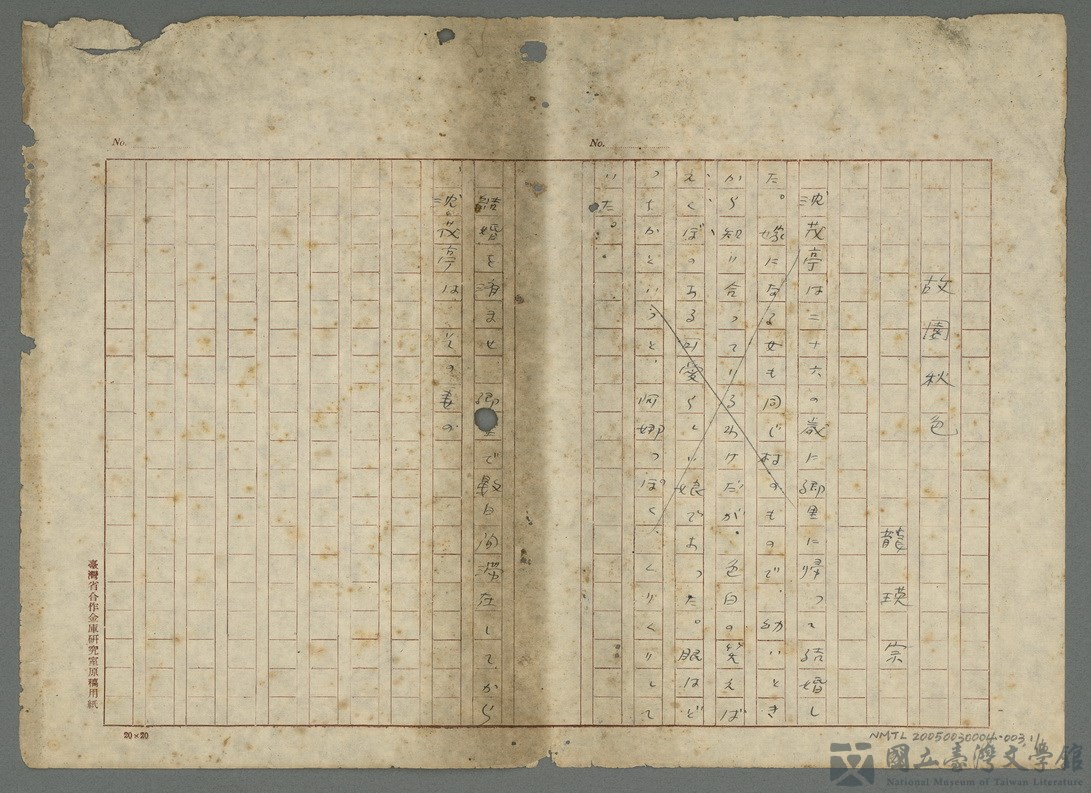 No.
No.
故園秋色
龍瑛宗
沈茂亭は二十六の歳に郷里に帰って結婚し
た。嫁になる女も同じ村のもので、幼いとき
から知り合っているわけだが、色白の笑えば
えくぼのある可愛らしい娘であった。眼はど
っちかというと、阿娜っぽく、くりくりして
いた。
結婚を済ませ 郷里で数日間滞在してから
、沈茂亭は その妻の
臺灣省合作金庫研究室原稿用紙
20×20
NMTL 20050030004-003 1/1
國立臺灣文學館
National Museum of Taiwan Literature